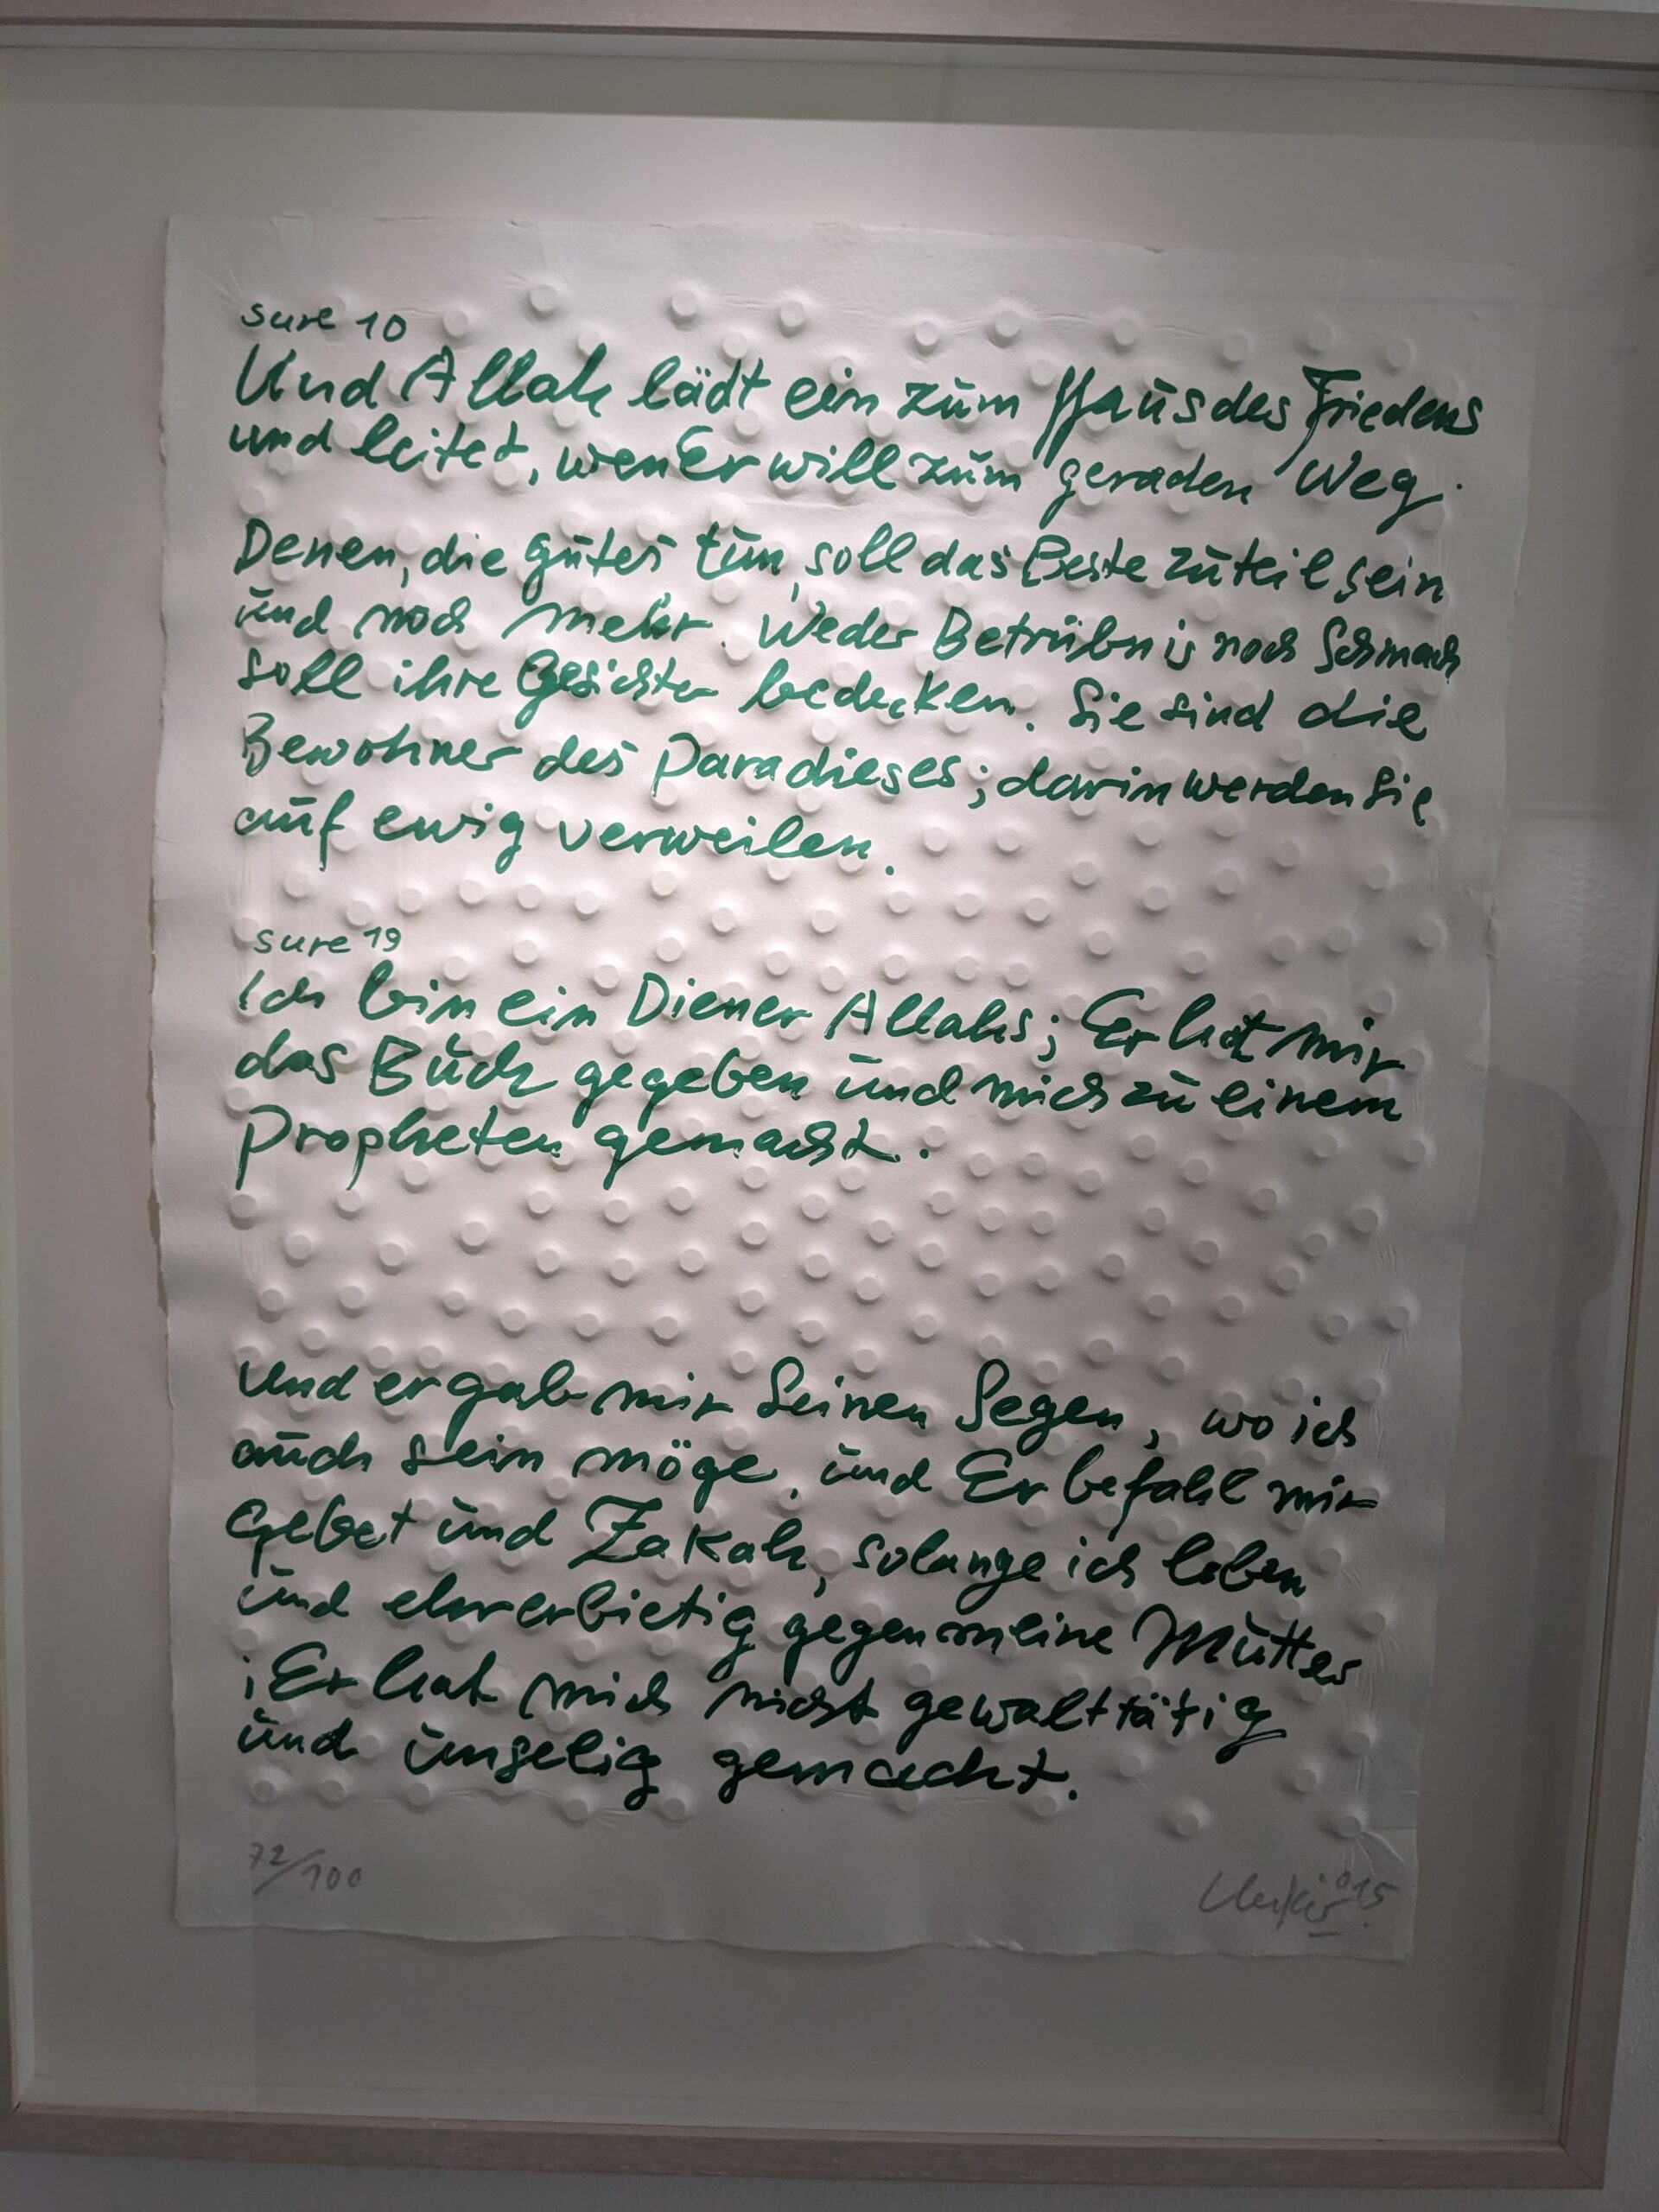 sure 10
Und Allah lädt ein zum Haus des Friedens
und leitet, wen Er will zum geraden Weg.
Denen, die gutes tun, soll das Beste zuteil sein
und noch mehr. Weder Betrübnis noch Schmach
soll ihre Gesichter bedecken. Sie sind die
Bewohner des Paradieses; darin werden sie
auf ewig verweilen.
sure 19
Ich bin ein Diener Allahs; Er hat mir
das Buch gegeben und mich zu einem
Propheten gemacht.
Und er gab mir Seinen Segen, wo ich
auch sein möge, und Er befahl mir
Gebet und Zakah, solange ich leben
und ehrerbietig gegen meine Mutter
; Er hat mich nicht gewalttätig
und unselig gemacht.
72/100
015